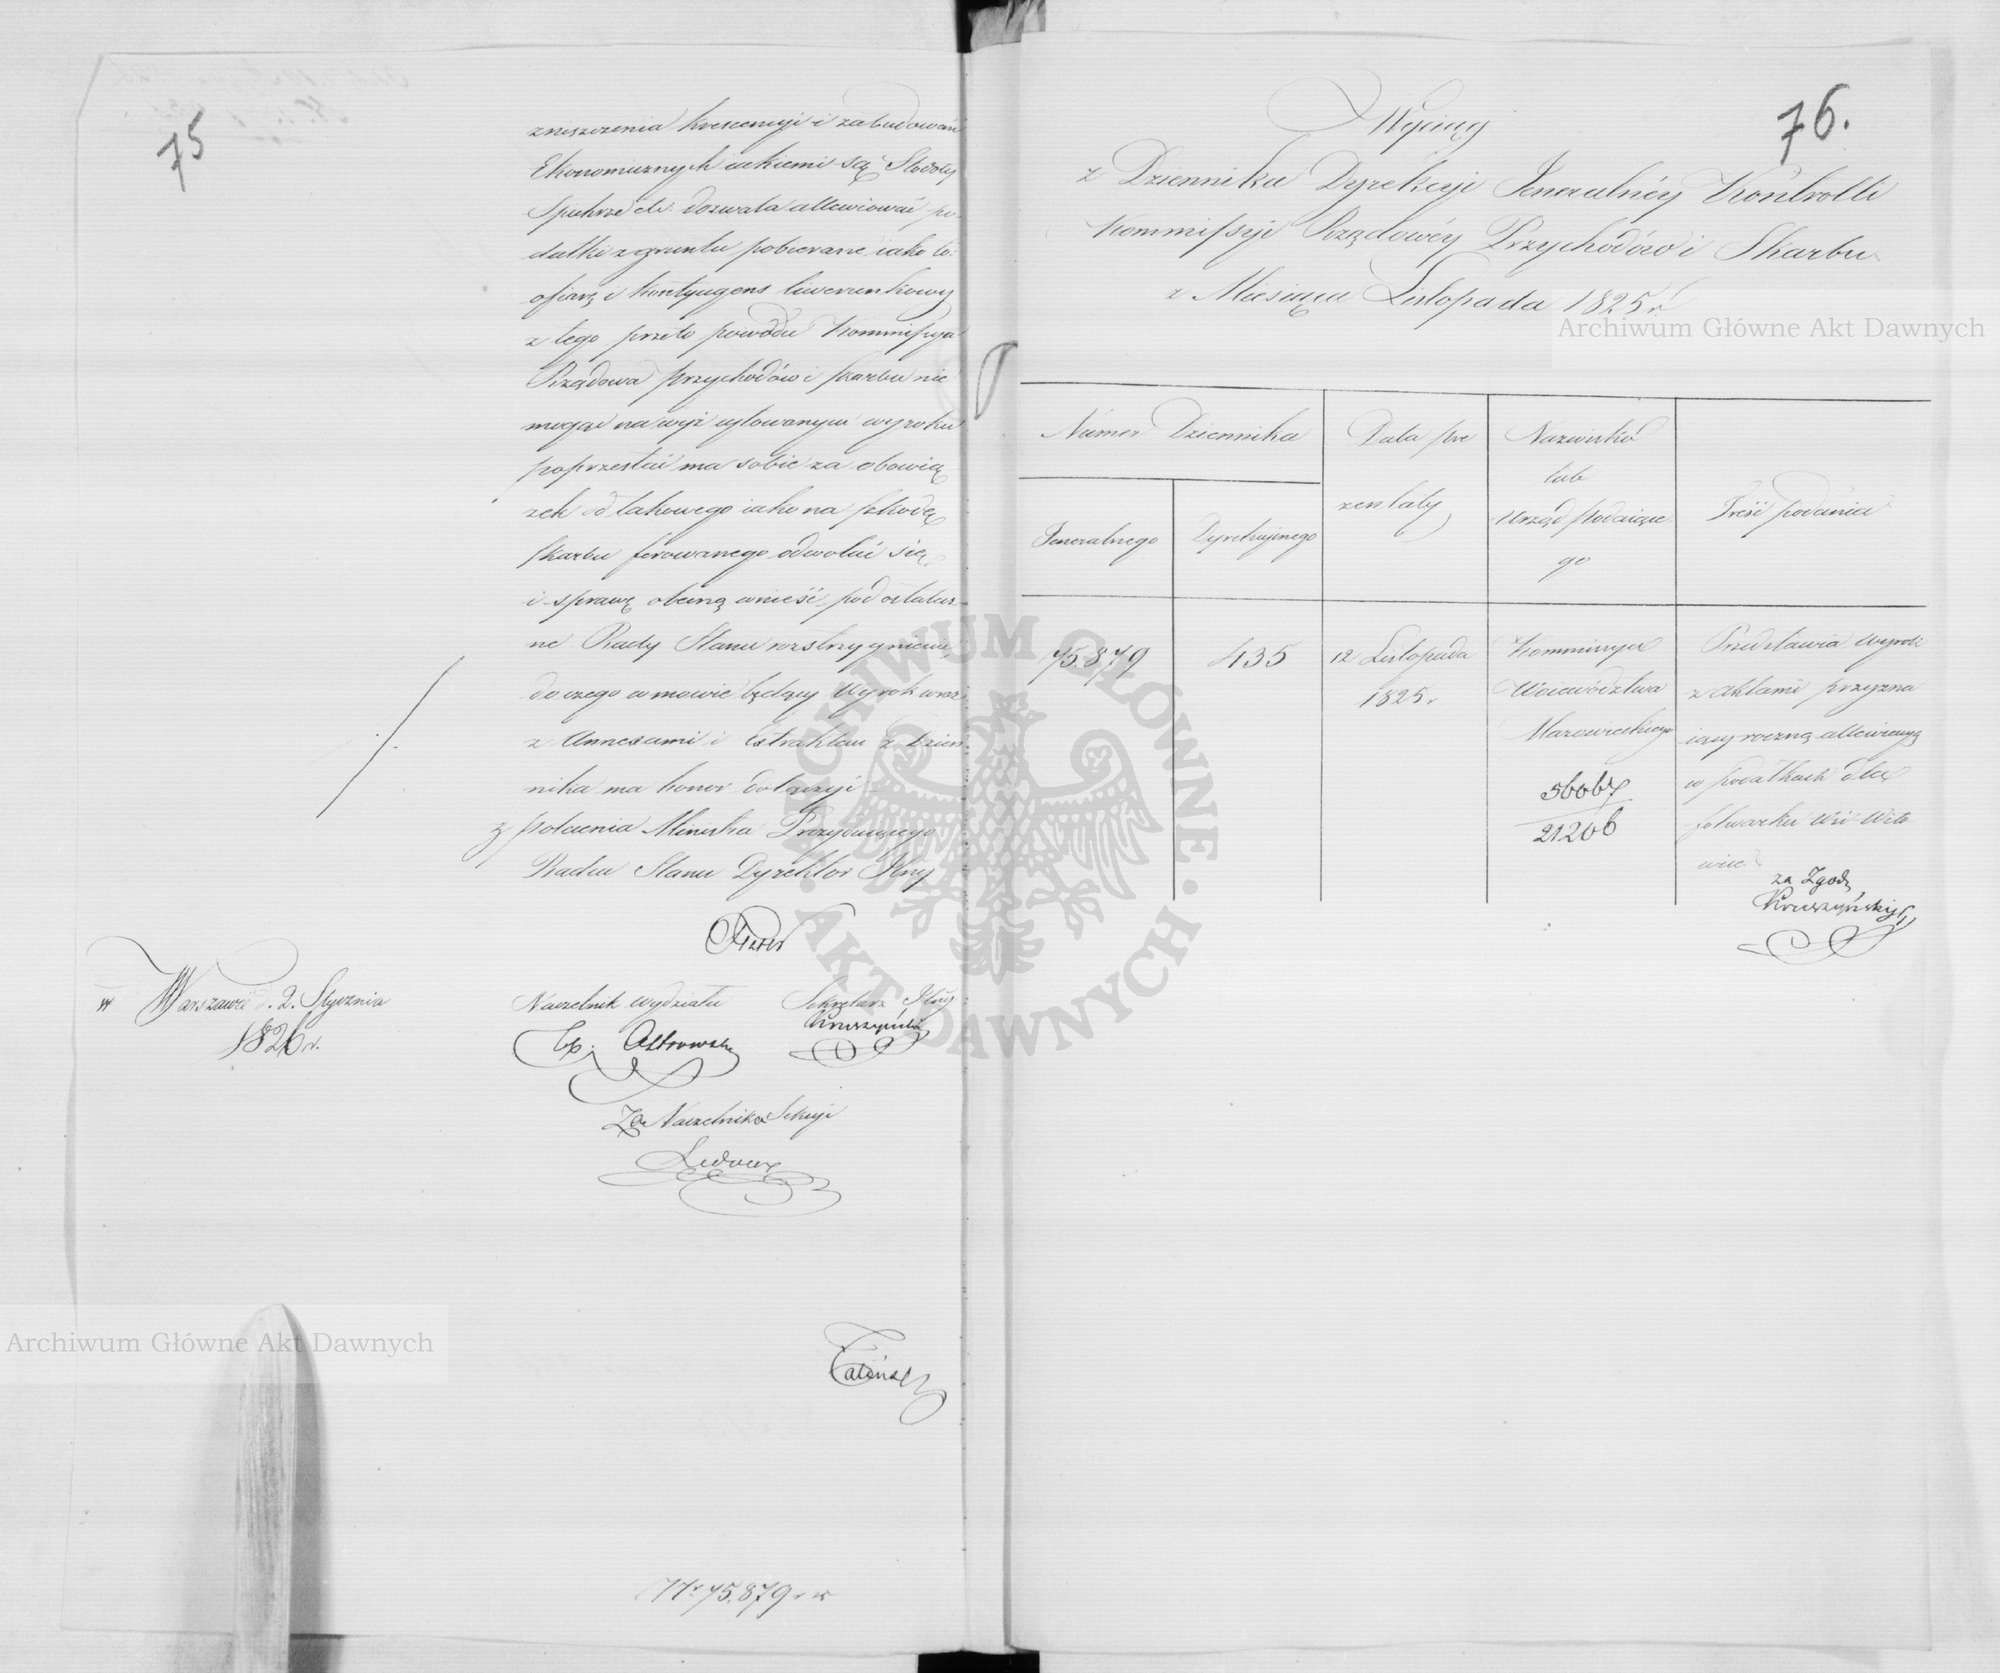 75
zniszczenia krescencyi i zabudowań
Ekonomicznych iakiemi są Stodoły
Spichrze etc. dozwala allewiować po-
datki z gruntu pobierane iako to:
ofiarę i kontyngens liwerunkowy
z tego przeto powodu Kommissya
Rządowa przychodów i skarbu nie
mogąc na wyż cytowanym wyroku
poprzestać ma sobie za obowią
zek od takowego iako na szkodę
skarbu ferowanego odwołać się
i sprawę obecną wnieść pod ostatecz-
ne Rady Stanu rozstrzygnienie,
do czego w mowie będący Wyrok wraz
z Annexami i Extraktem z Dzien-
nika ma honor dołączyć -
z polecenia Ministra Prezydującego
Radca Stanu Dyrektor Jlny
W Warszawie d. 2. Stycznia
1826 r.
Naczelnik Wydziału
Sekretarz Jlny
Kruszyński
Za Naczelnika Sekcyi
Nr 75,879
76.
Wyciąg
z Dziennika Dyrekcyi Jeneralnéy Kontrolli
Kommissyi Rządowéy Przychodów i Skarbu
z Miesiąca Listopada 1825 r.
Numer Dziennika
Jeneralnego
Dyrekcyinego
Data pre
zentaty
Nazwisko
lub
Urząd podaiące
go
Treść podania
75.879
435
12 Listopada
1825 r.
Kommissya
Woiewództwa
Mazowieckiego
56067
21206
Przedstawia wyrok
z aktami przyzna
iący roczną allewiacyą
w podatkach dla
folwarku Wsi Wito
wice
za Zgod
Kruszyński
Archiwum Główne Akt Dawnych
Archiwum Główne Akt Dawnych
ARCHIWUM GŁÓWNE • AKT DAWNYCH •